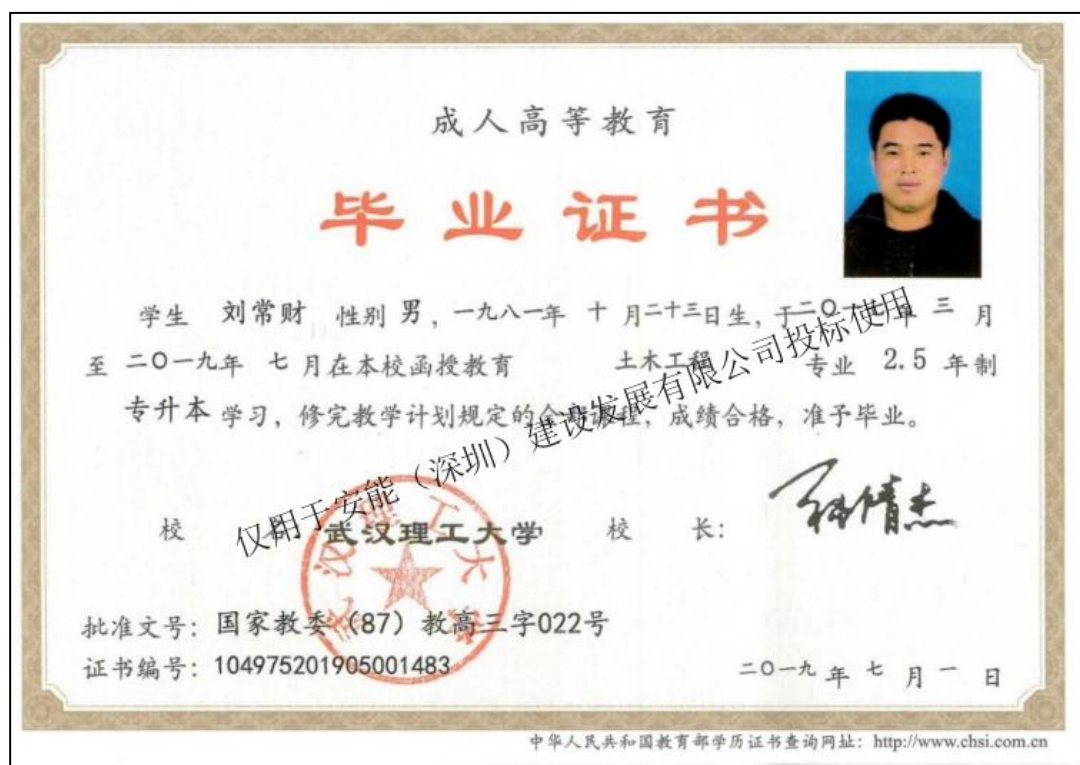 成人高等教育
毕业证书
学生 刘常财 性别 男，一九八一年 十 月二十三日生，于二〇一 年 三 月
至 二〇一九年 七 月在本校函授教育 土木工程 专业 2.5 年制
专升本 学习，修完教学计划规定的全部课程，成绩合格，准予毕业。
仅用于安能（深圳）建设发展有限公司投标使用
校 名：武汉理工大学 校 长：
武汉理工大学
批准文号：国家教委（87）教高三字022号
证书编号：104975201905001483
二〇一九 年 七 月 一 日
中华人民共和国教育部学历证书查询网址：http://www.chsi.com.cn